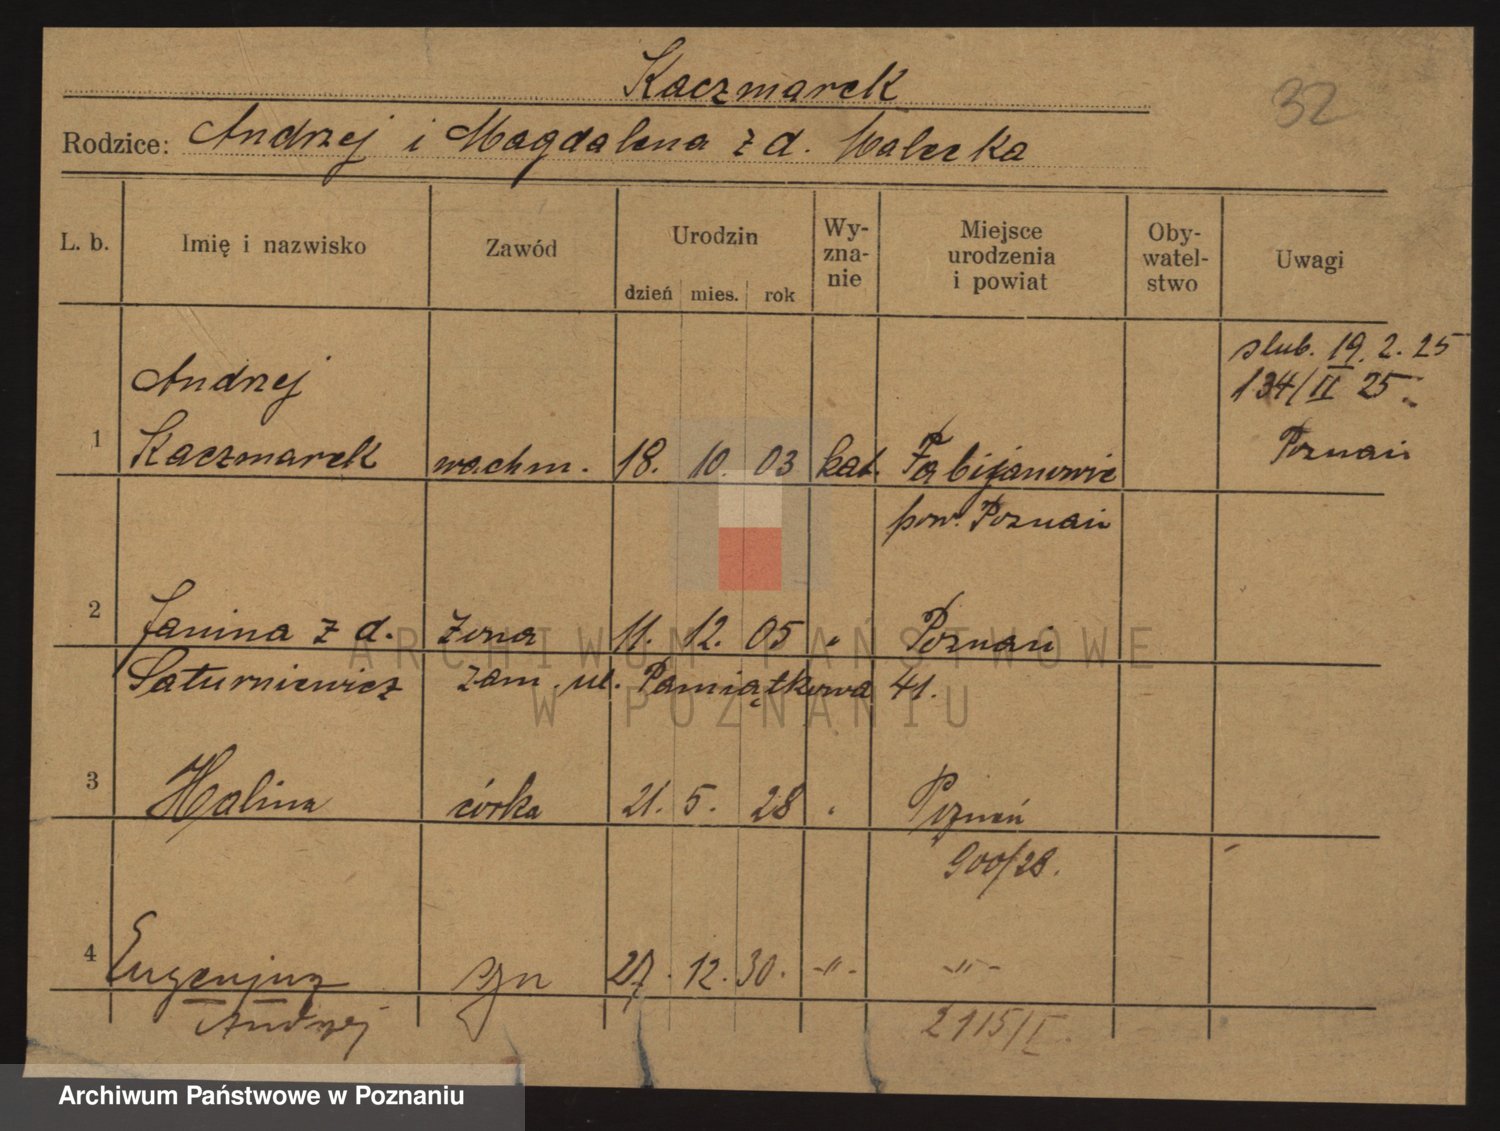 Kaczmarek
32
Rodzice: Andrzej i Magdalena z d. Walecka
L. b. Imię i nazwisko Zawód Urodzin Wy-zna-nie Miejsce urodzenia i powiat Oby-watel-stwo Uwagi
dzień mies. rok
slub. 19. 2. 25
134/II 25.
Poznań
Andrzej
1 Kaczmarek wachm. 18. 10. 03 kat. Fabijanowie
pow. Poznań
2 Janina z d. żona 11. 12. 05 " Poznań
Saturniewicz zam. ul. Pamiątkowa 41.
3 Halina córka 21. 5. 28 " Poznań
900/28.
4 Eugenjusz syn 27. 12. 30. -"- -"-
Andrzej 2115/I
ARCHIWUM PAŃSTWOWE
W POZNANIU
Archiwum Państwowe w Poznaniu